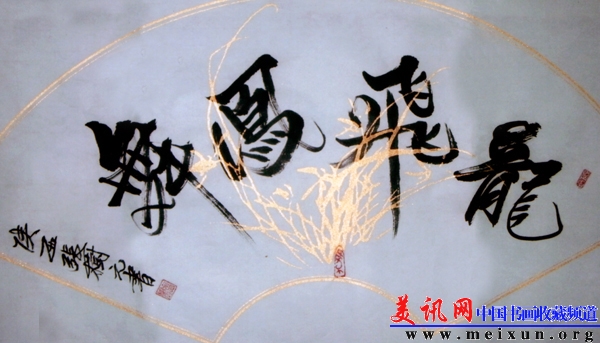 龍飛鳳舞
陝西張樹元書
美讯网中国书画收藏频道
www.meixun.org